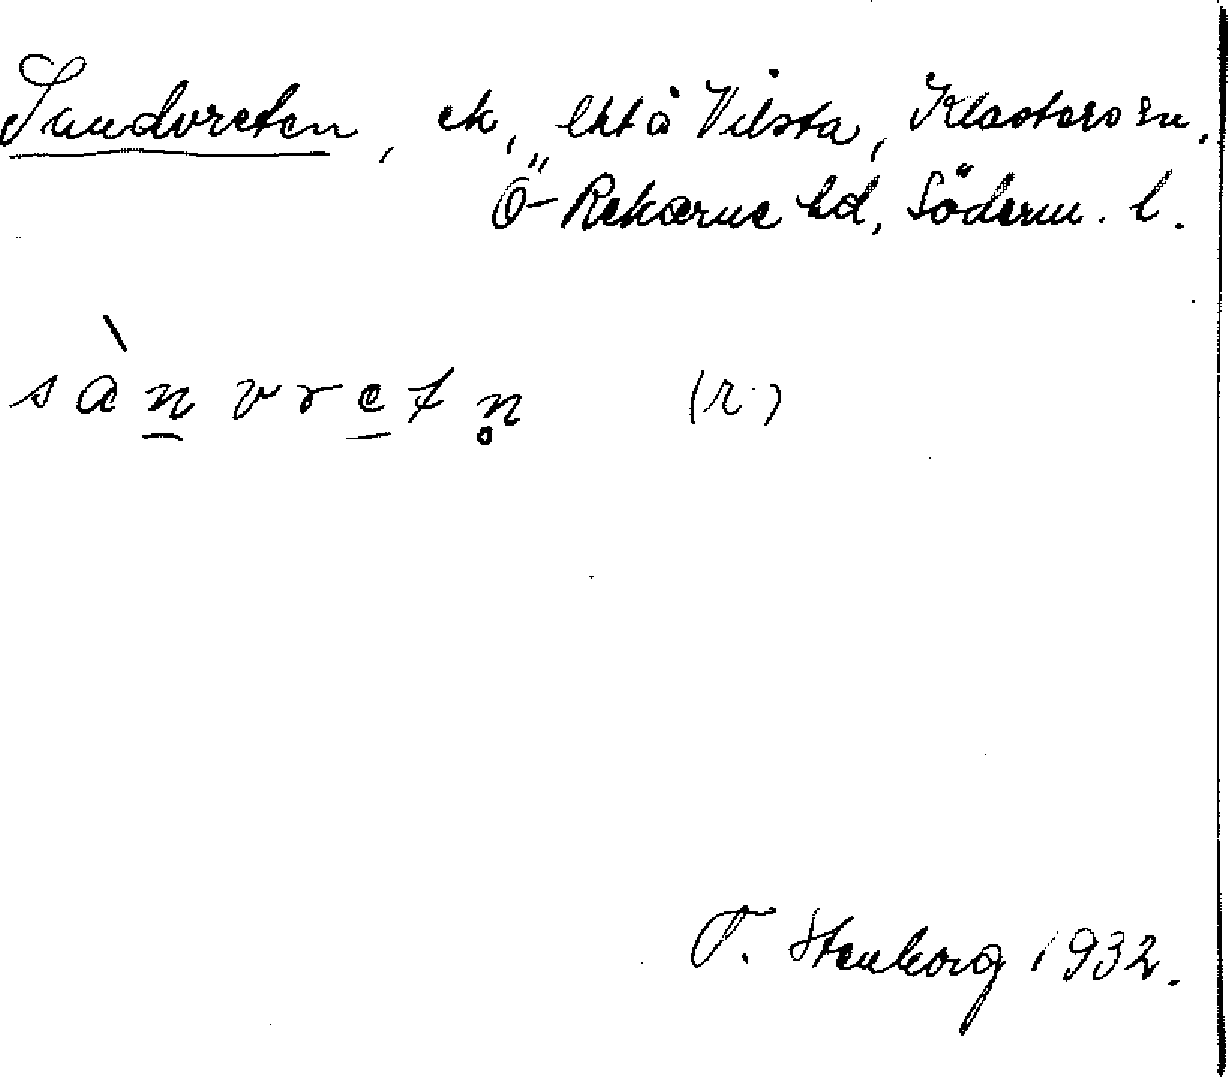 Sandvreten, ek, Vilsta, Klosters sn.
Ö-Rekarne hd, Söderm. l.
sànvretn̥ (r.)
T. Stenborg 1932.